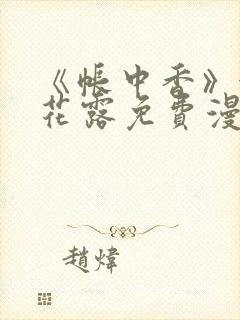 《帳中香》
花露免費漫
趙煒